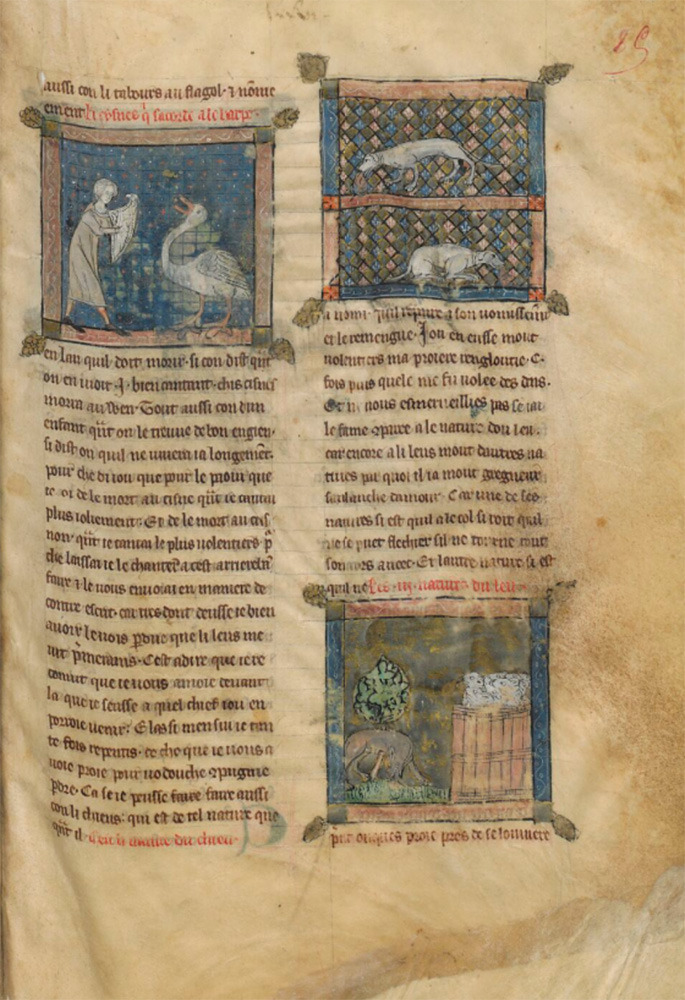 25
aussi con li tabours au flagol · ⁊ nōme
ement li cysnes q̇ sacorde a le harpe ·
en lan quil doit morir · si con dist qn̄t
on en voit · I · bien cantant · chis cisnes
morra auwen · Tout aussi con dun
enfant qn̄t on le treuve de bon engien ·
si dist on quil ne vivera ia longement ·
pour che di iou que pour le paour que
ie oi de le mort au cisne qn̄t ie cantai
plus ioliement · Et de le mort au cris
non · qn̄t ie cantai le plus volentiers · p̄
che laissai ie le chanter a cest arriereban
faire ⁊ le vous envoiai en maniere de
contre escrit · car tres dont deusse ie bien
avoir le vois pdue que li leus me
vit p̄merains · Cest adire que ie re
connut que ie vous amoie devant
la que ie seusse a quel chief iou en
porroie venir · E las si men sui ie tan
te fois repentis · de che que ie vous a
voie proie pour vo douche 9paignie
pdre · Ca se ie peusse faire faire aussi
con li chiens · qui est de tel nature que
qn̄t il · cen li nature du chien ·
a vomi · quil repaire a son vomissem̄t
et le remengue · Iou en eusse mout
volentiers ma proiere rengloutie · C ·
fois puis quele me fu volee des dens ·
Et ne vous esmerveillies pas se iai
le fame 9pare a le nature dou leu ·
car encore a li leus mout dautres na
tures par quoi il i a mout gregneur
sanlanche damour · Car une de ses
natures si est quil a le col si roit quil
ne se puet flechier sil ne torne tout
son cors avec · Et lautre nature si est
quil ne Les · iii · natures du leu ·
prent onques proie pres de se louviere